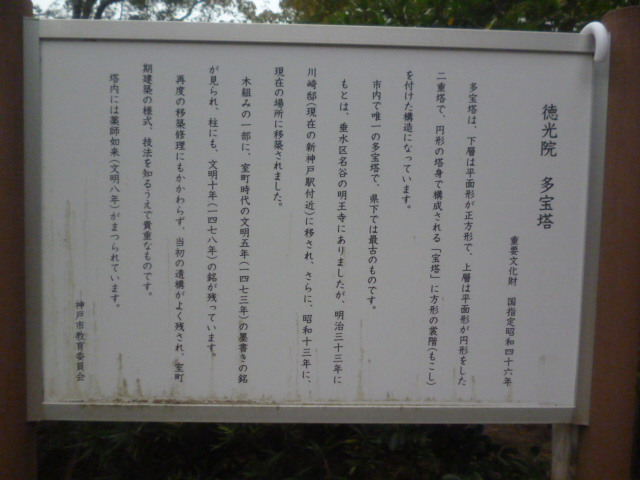 徳光院　多宝塔
重要文化財　国指定昭和四十六年
多宝塔は、下層は平面形が正方形で、上層は平面形が円形をした
二重塔で、円形の塔身で構成される「宝塔」に方形の裳階(もこし)
を付けた構造になっています。
市内で唯一の多宝塔で、県下では最古のものです。
もとは、垂水区名谷の明王寺にありましたが、明治三十三年に
川崎邸(現在の新神戸駅付近)に移され、さらに、昭和十三年に、
現在の場所に移築されました。
木組みの一部に、室町時代の文明五年(一四七三年)の墨書きの銘
が見られ、柱にも、文明十年(一四七八年)の銘が残っています。
再度の移築修理にもかかわらず、当初の遺構がよく残され、室町
期建築の様式、技法を知るうえで貴重なものです。
塔内には薬師如来(文明八年)がまつられています。
神戸市教育委員会